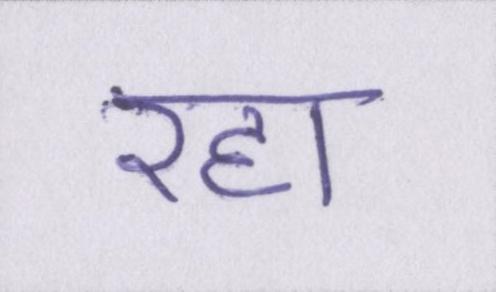 रहा